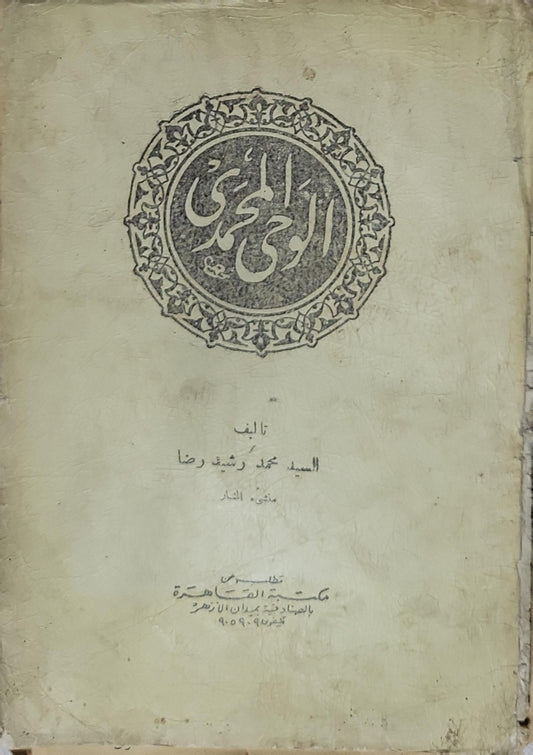 الوحى المحمدى
تأليف
السيد محمد رشيد رضا
منشىء المنار
تطلب من
مكتبة القاهرة
بالصنادقية بميدان الأزهر
تليفون ٩٠٥٩٠٩